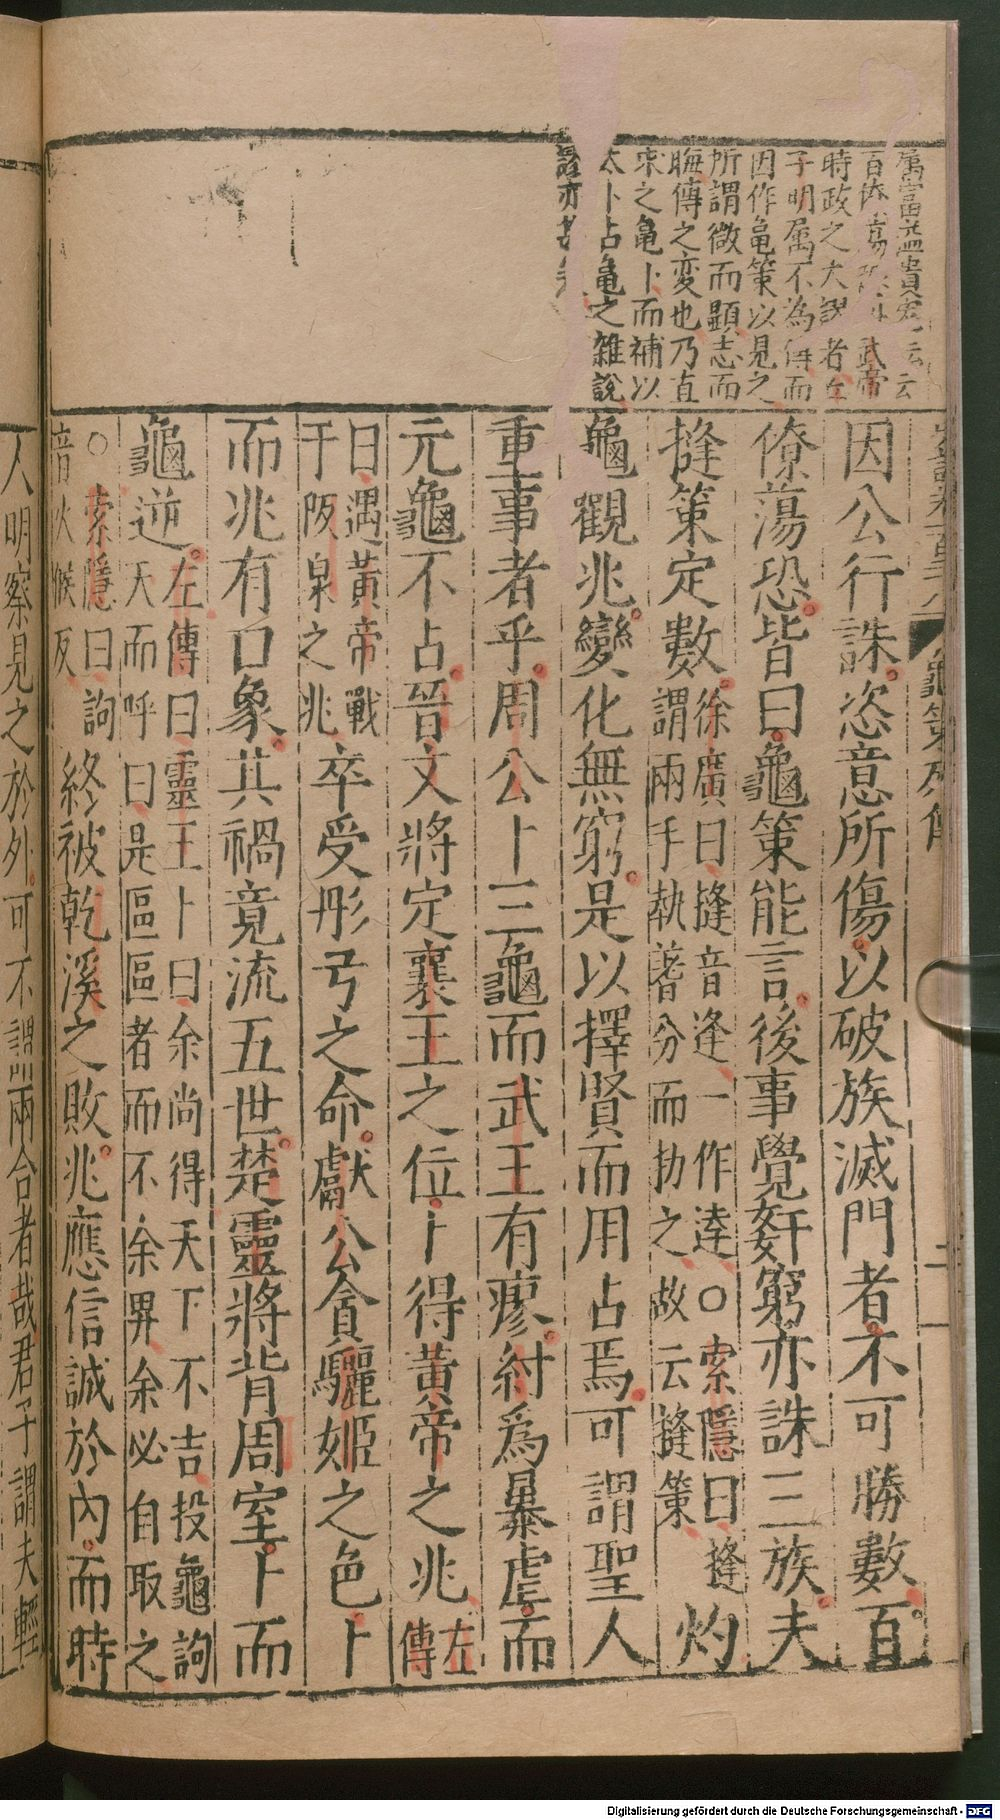 時政之大
子明屬不為傳而
因作亀策以見之
所謂微而顯志而
晦傳之変也乃直
宋之亀卜而補以
太卜占亀之雜說
龜策列傳
因公行誅恣意所傷以破族滅門者不可勝數百
僚蕩恐皆曰龜策能言後事覺姦窮亦誅三族夫
摓策定數徐廣曰摓音逢一作逹〇索隱曰摓
謂兩手執蓍分而扐之故云摓策
灼
龜觀兆變化無窮是以擇賢而用占焉可謂聖人
重事者乎周公卜三龜而武王有瘳紂爲暴虐而
元龜不占晉文將定襄王之位卜得黃帝之兆左
傳
曰遇黃帝戰
于阪泉之兆
卒受彤弓之命獻公貪驪姬之色卜
而兆有口象其禍竟流五世楚靈將背周室卜而
龜逆左傳曰靈王卜曰余尚得天下不吉投龜詢
天而呼曰是區區者而不余畀余必自取之
〇索隱曰詢
音火候反
終被乾溪之敗兆應信誠於內而時
人明察見之於外可不謂兩合者哉君子謂夫輕
Digitalisierung gefördert durch die Deutsche Forschungsgemeinschaft - DFG